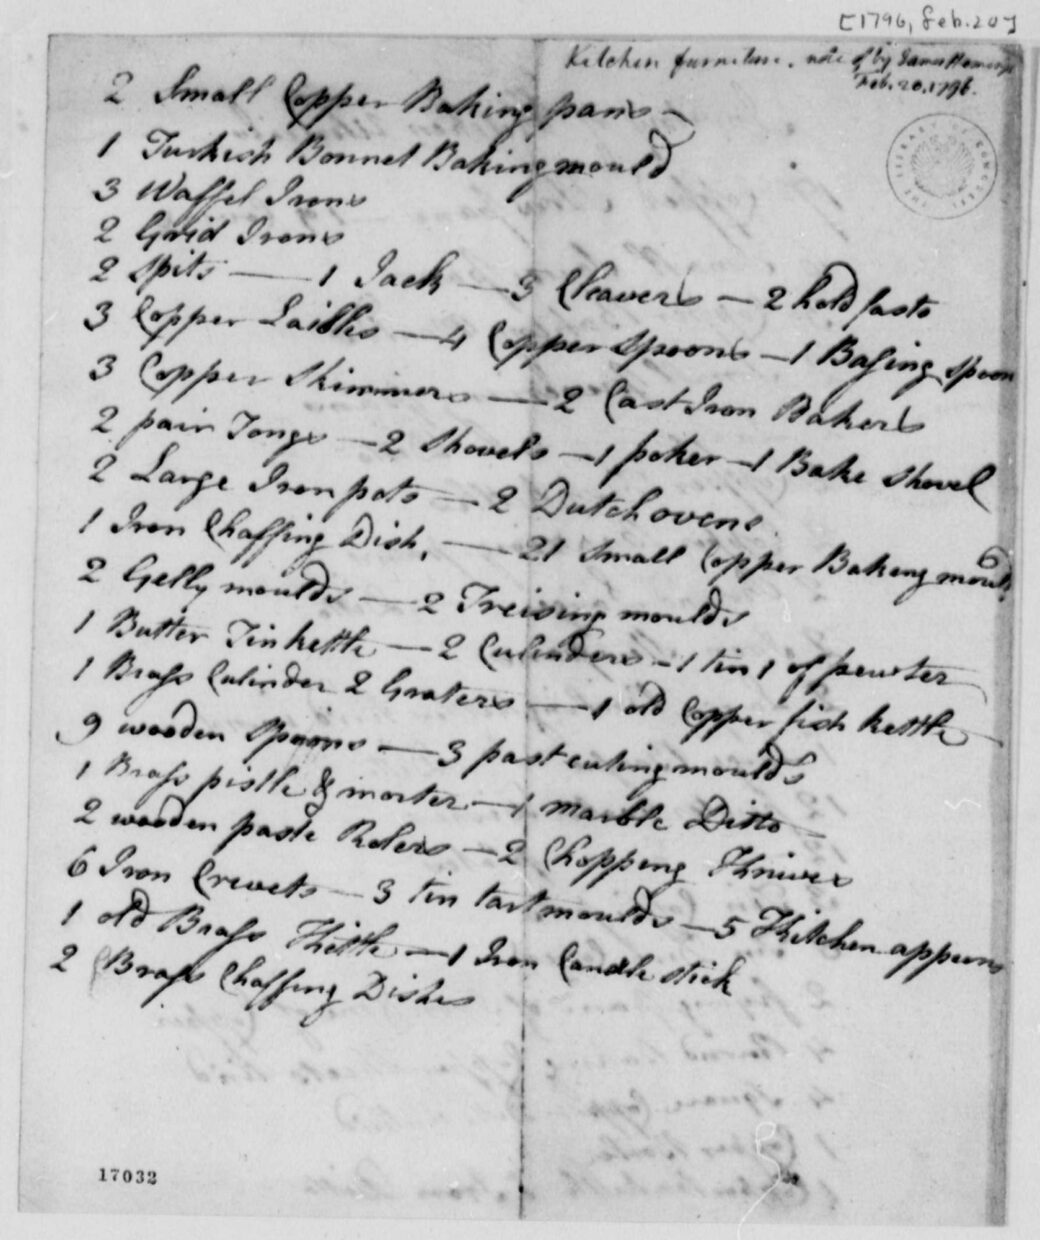 [1796, Feb. 20]
Kitchen furniture. note of by James Hemings
Feb. 20. 1796.
2 Small Copper Baking pans
1 Turkish Bonnet Baking mould
3 Waffel Irons
2 Grid Irons
2 Spits — 1 Jack — 3 Cleavers — 2 hold fasts
3 Copper Laidles — 4 Copper Spoons — 1 Basing Spoon
3 Copper Skimmers — 2 Cast Iron Bakers
2 pair Tongs — 2 Shovels — 1 poker — 1 Bake Shovel
2 Large Iron pots — 2 Dutch ovens
1 Iron Chaffing Dish, — 21 Small Copper Baking moulds
2 Gelly moulds — 2 Treising moulds
1 Butter Tin kettle — 2 Culinders — 1 tin 1 of pewter
1 Brass Culinder 2 Graters — 1 old Copper fish kettle
9 wooden Spoons — 3 past cuting moulds
1 Brass pistle & morter — 1 marble Ditto
2 wooden paste Rolers — 2 Chopping Knives
6 Iron Crevets — 3 tin tart moulds — 5 Kitchen apperns
1 old Brass Kittle — 1 Iron Candle stick
2 Brass Chaffing Dishes
17032